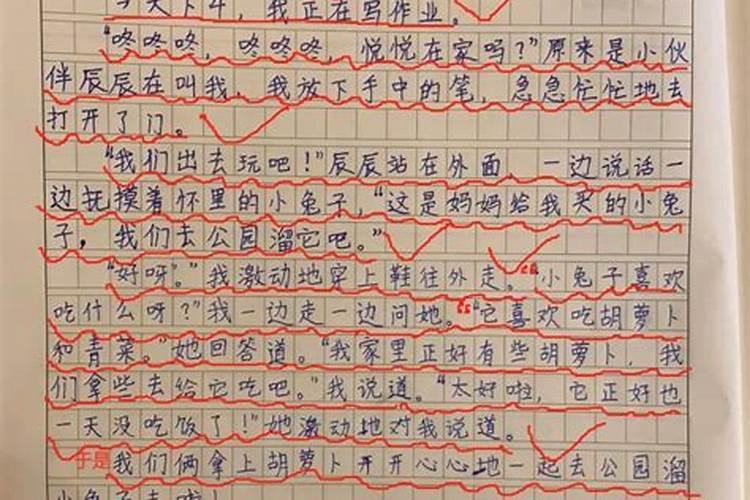 今天下午，我正在写作业。
“咚咚咚，咚咚咚，悦悦在家吗？”原来是小伙
伴辰辰在叫我，我放下手中的笔，急急忙忙地去
打开了门。
“我们出去玩吧！”辰辰站在外面，一边说话一
边抚摸着怀里的小兔子，“这是妈妈给我买的小兔
子，我们去公园溜它吧。”
“好呀。”我激动地穿上鞋往外走。“小兔子喜欢
吃什么呀？”我一边走一边问她。“它喜欢吃胡萝卜
和青菜。”她回答道。“我家里正好有些胡萝卜，我
们拿些去给它吃吧。”我说道。“太好啦，它正好也
一天没吃饭了！”她激动地对我说道。
于是我们俩拿上胡萝卜开开心心地一起去公园溜
小兔子去啦！